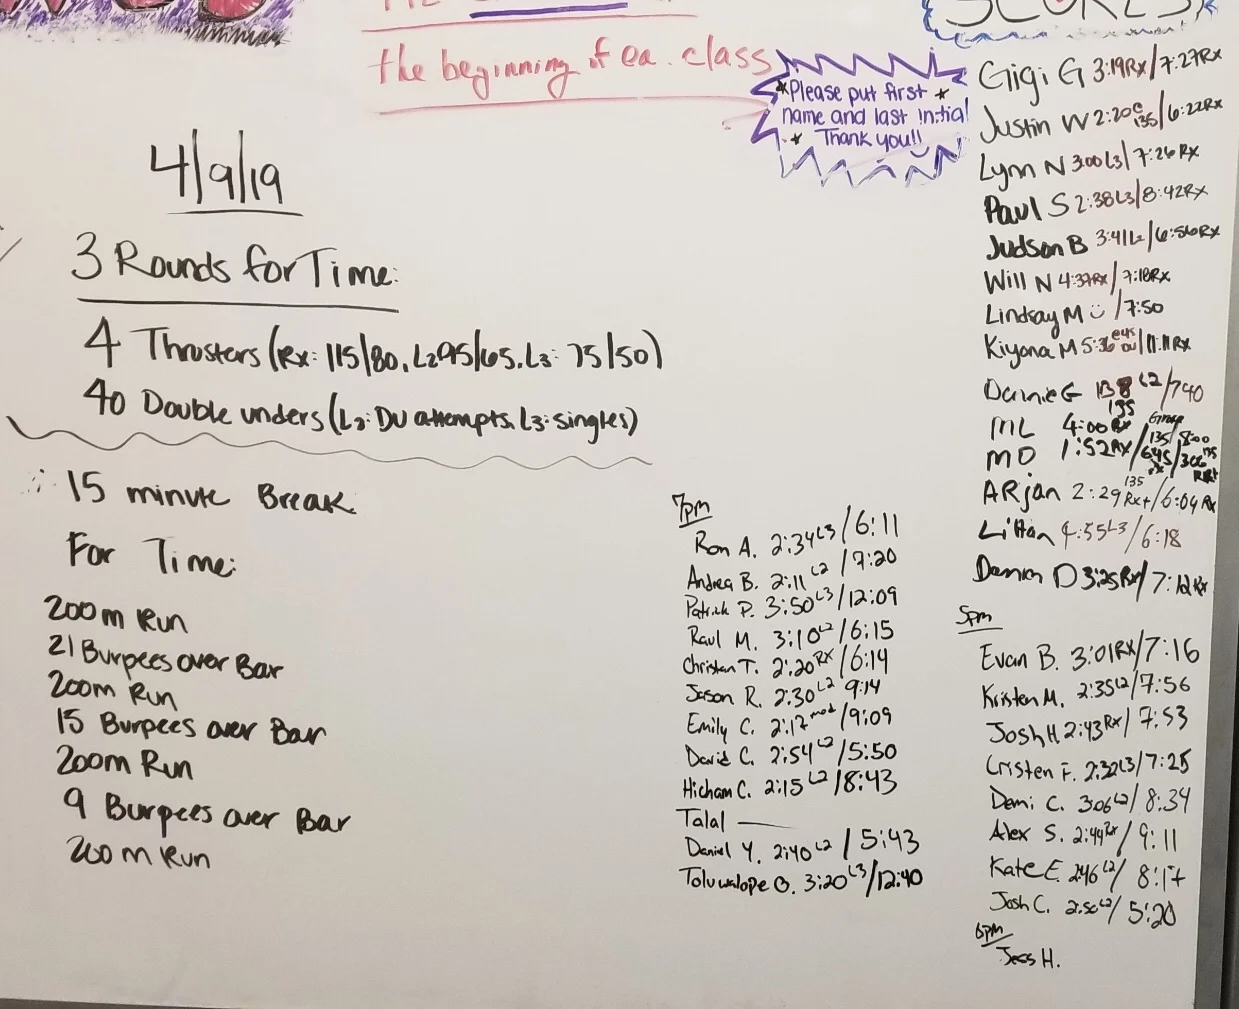 the beginning of ea. class
*Please put first *
name and last initial
* Thank you!!
SCORES
4/9/19
3 Rounds for Time:
4 Thrusters (Rx: 115/80, L2 95/65, L3: 75/50)
40 Double unders (L2: DU attempts, L3: singles)
15 minute Break
For Time:
200m Run
21 Burpees over Bar
200m Run
15 Burpees over Bar
200m Run
9 Burpees over Bar
200m Run
7pm
Ron A. 2:34 L3 / 6:11
Andrea B. 2:11 L2 / 7:20
Patrick P. 3:50 L3 / 12:09
Raul M. 3:10 L2 / 6:15
Christian T. 2:20 RX / 6:14
Jason R. 2:30 L2 9:14
Emily C. 2:17 mod / 9:09
David C. 2:54 L2 / 5:50
Hicham C. 2:15 L2 / 8:43
Talal —
Daniel Y. 2:40 L2 / 5:43
Toluwalope O. 3:20 L3 / 12:40
Gigi G 3:19Rx / 7:27Rx
Justin W 2:20 135 / 6:22Rx
Lynn N 3:00 L3 / 7:26 Rx
Paul S 2:38 L3 / 8:42Rx
Judson B 3:41 L2 / 6:56Rx
Will N 4:37Rx / 7:18Rx
Lindsay M / 7:50
Kiyona M 5:36 / 11:11 Rx
Dannie G L2 / 740
ML 4:00 Rx 135 / 8:00
MD 1:52Rx
ARjan 2:29 135 Rx+ / 6:04 Rx
4:55 L3 / 6:18
D 3:25Rx / 7:12 Rx
5pm
Evan B. 3:01RX / 7:16
Kristen M. 2:35 L2 / 7:56
Josh H 2:43 Rx / 7:53
Cristen F. 2:32 L3 / 7:25
Demi C. 3:06 L2 / 8:34
Alex S. 2:44 Rx / 9:11
Kate E. 2:46 L2 / 8:17
Josh C. 2:50 L2 / 5:20
6pm
Jess H.